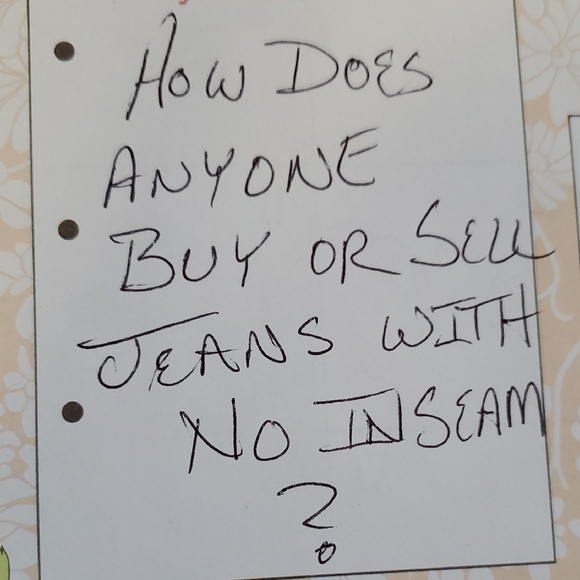 HOW DOES
ANYONE
BUY OR SELL
JEANS WITH
NO INSEAM
?